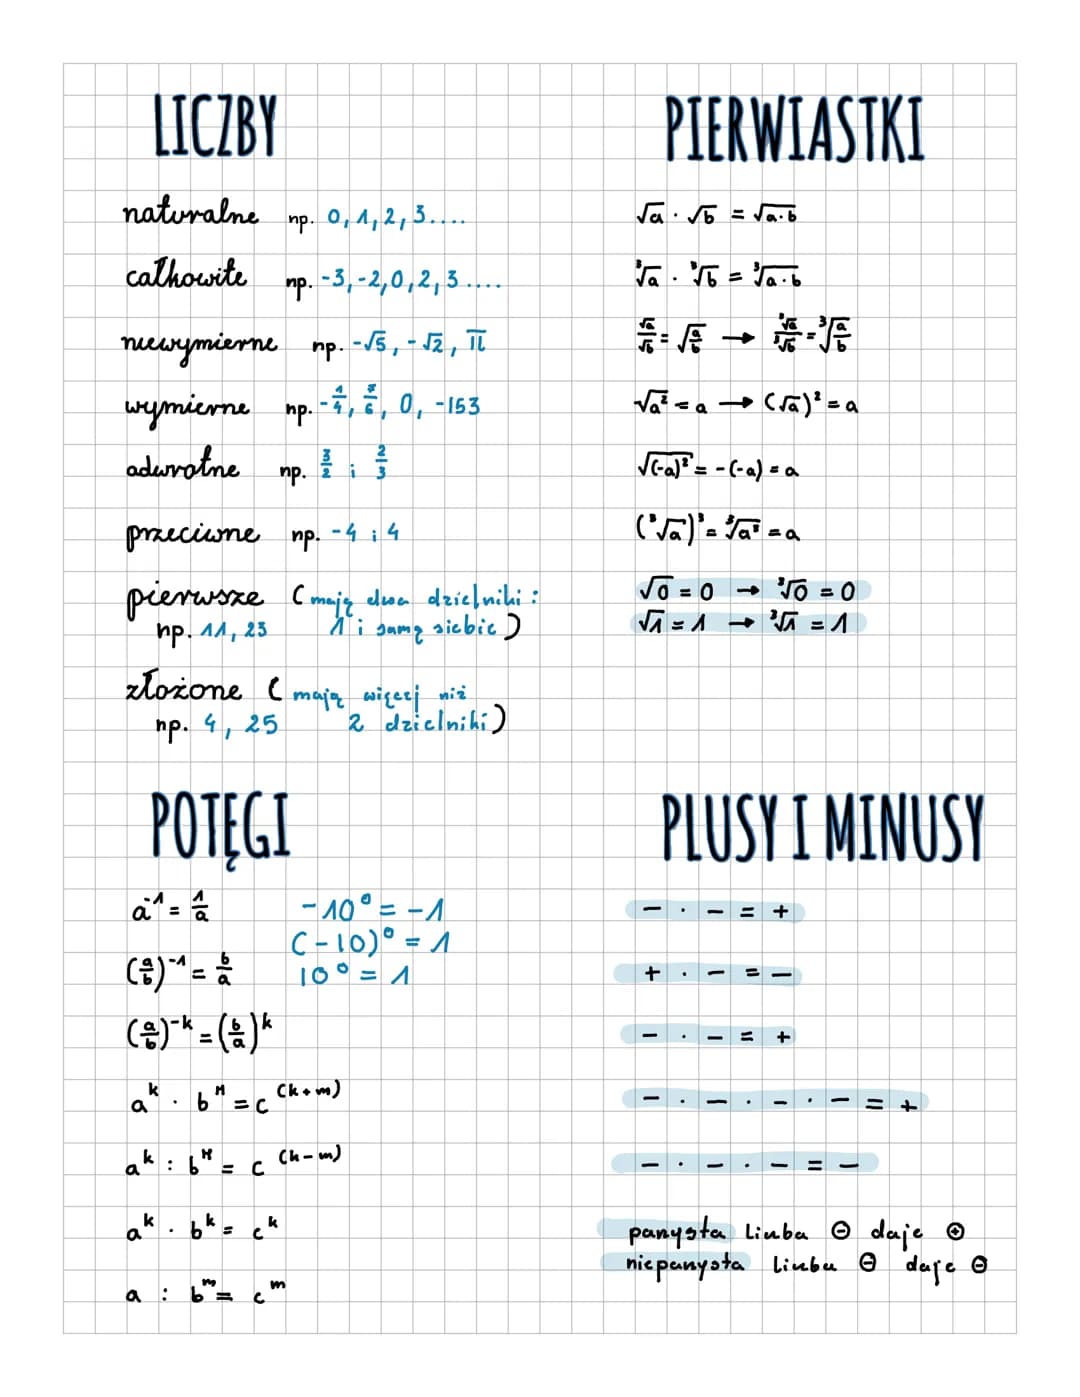 LICZBY
naturalne np. 0, 1, 2, 3....
całkowite np. -3, -2, 0, 2, 3....
niewymierne np. -√5, -√2, π
wymierne np. -1/4, 7/6, 0, -153
odwrotne np. 3/2 i 2/3
przeciwne np. -4 i 4
pierwsze (mają dwa dzielniki:
np. 11, 23 1 i samą siebie)
złożone (mają więcej niż
np. 4, 25 2 dzielniki)
PIERWIASTKI
√a · √b = √a·b
³√a · ³√b = ³√a·b
√a/√b = √a/b → ³√a/³√b = ³√a/b
√a² = a → (√a)² = a
√(-a)² = -(-a) = a
(³√a)³ = ³√a³ = a
√0 = 0 → ³√0 = 0
√1 = 1 → ³√1 = 1
POTĘGI
a⁻¹ = 1/a -10⁰ = -1
(-10)⁰ = 1
(a/b)⁻¹ = b/a 10⁰ = 1
(a/b)⁻ᵏ = (b/a)ᵏ
aᵏ · bᴹ = c ⁽ᵏ⁺ᵐ⁾
aᵏ : bᴹ = c ⁽ᵏ⁻ᵐ⁾
aᵏ · bᵏ = cᵏ
a : bᵐ = cᵐ
PLUSY I MINUSY
- · - = +
+ · - = -
- · - = +
- · - · - · - = +
- · - · - = -
parzysta liczba ⊖ daje ⊕
nieparzysta liczba ⊖ daje ⊖